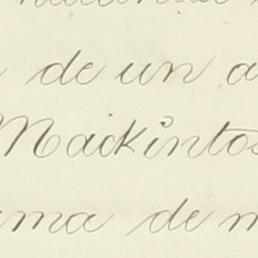 de un
Mackintos
ma de m